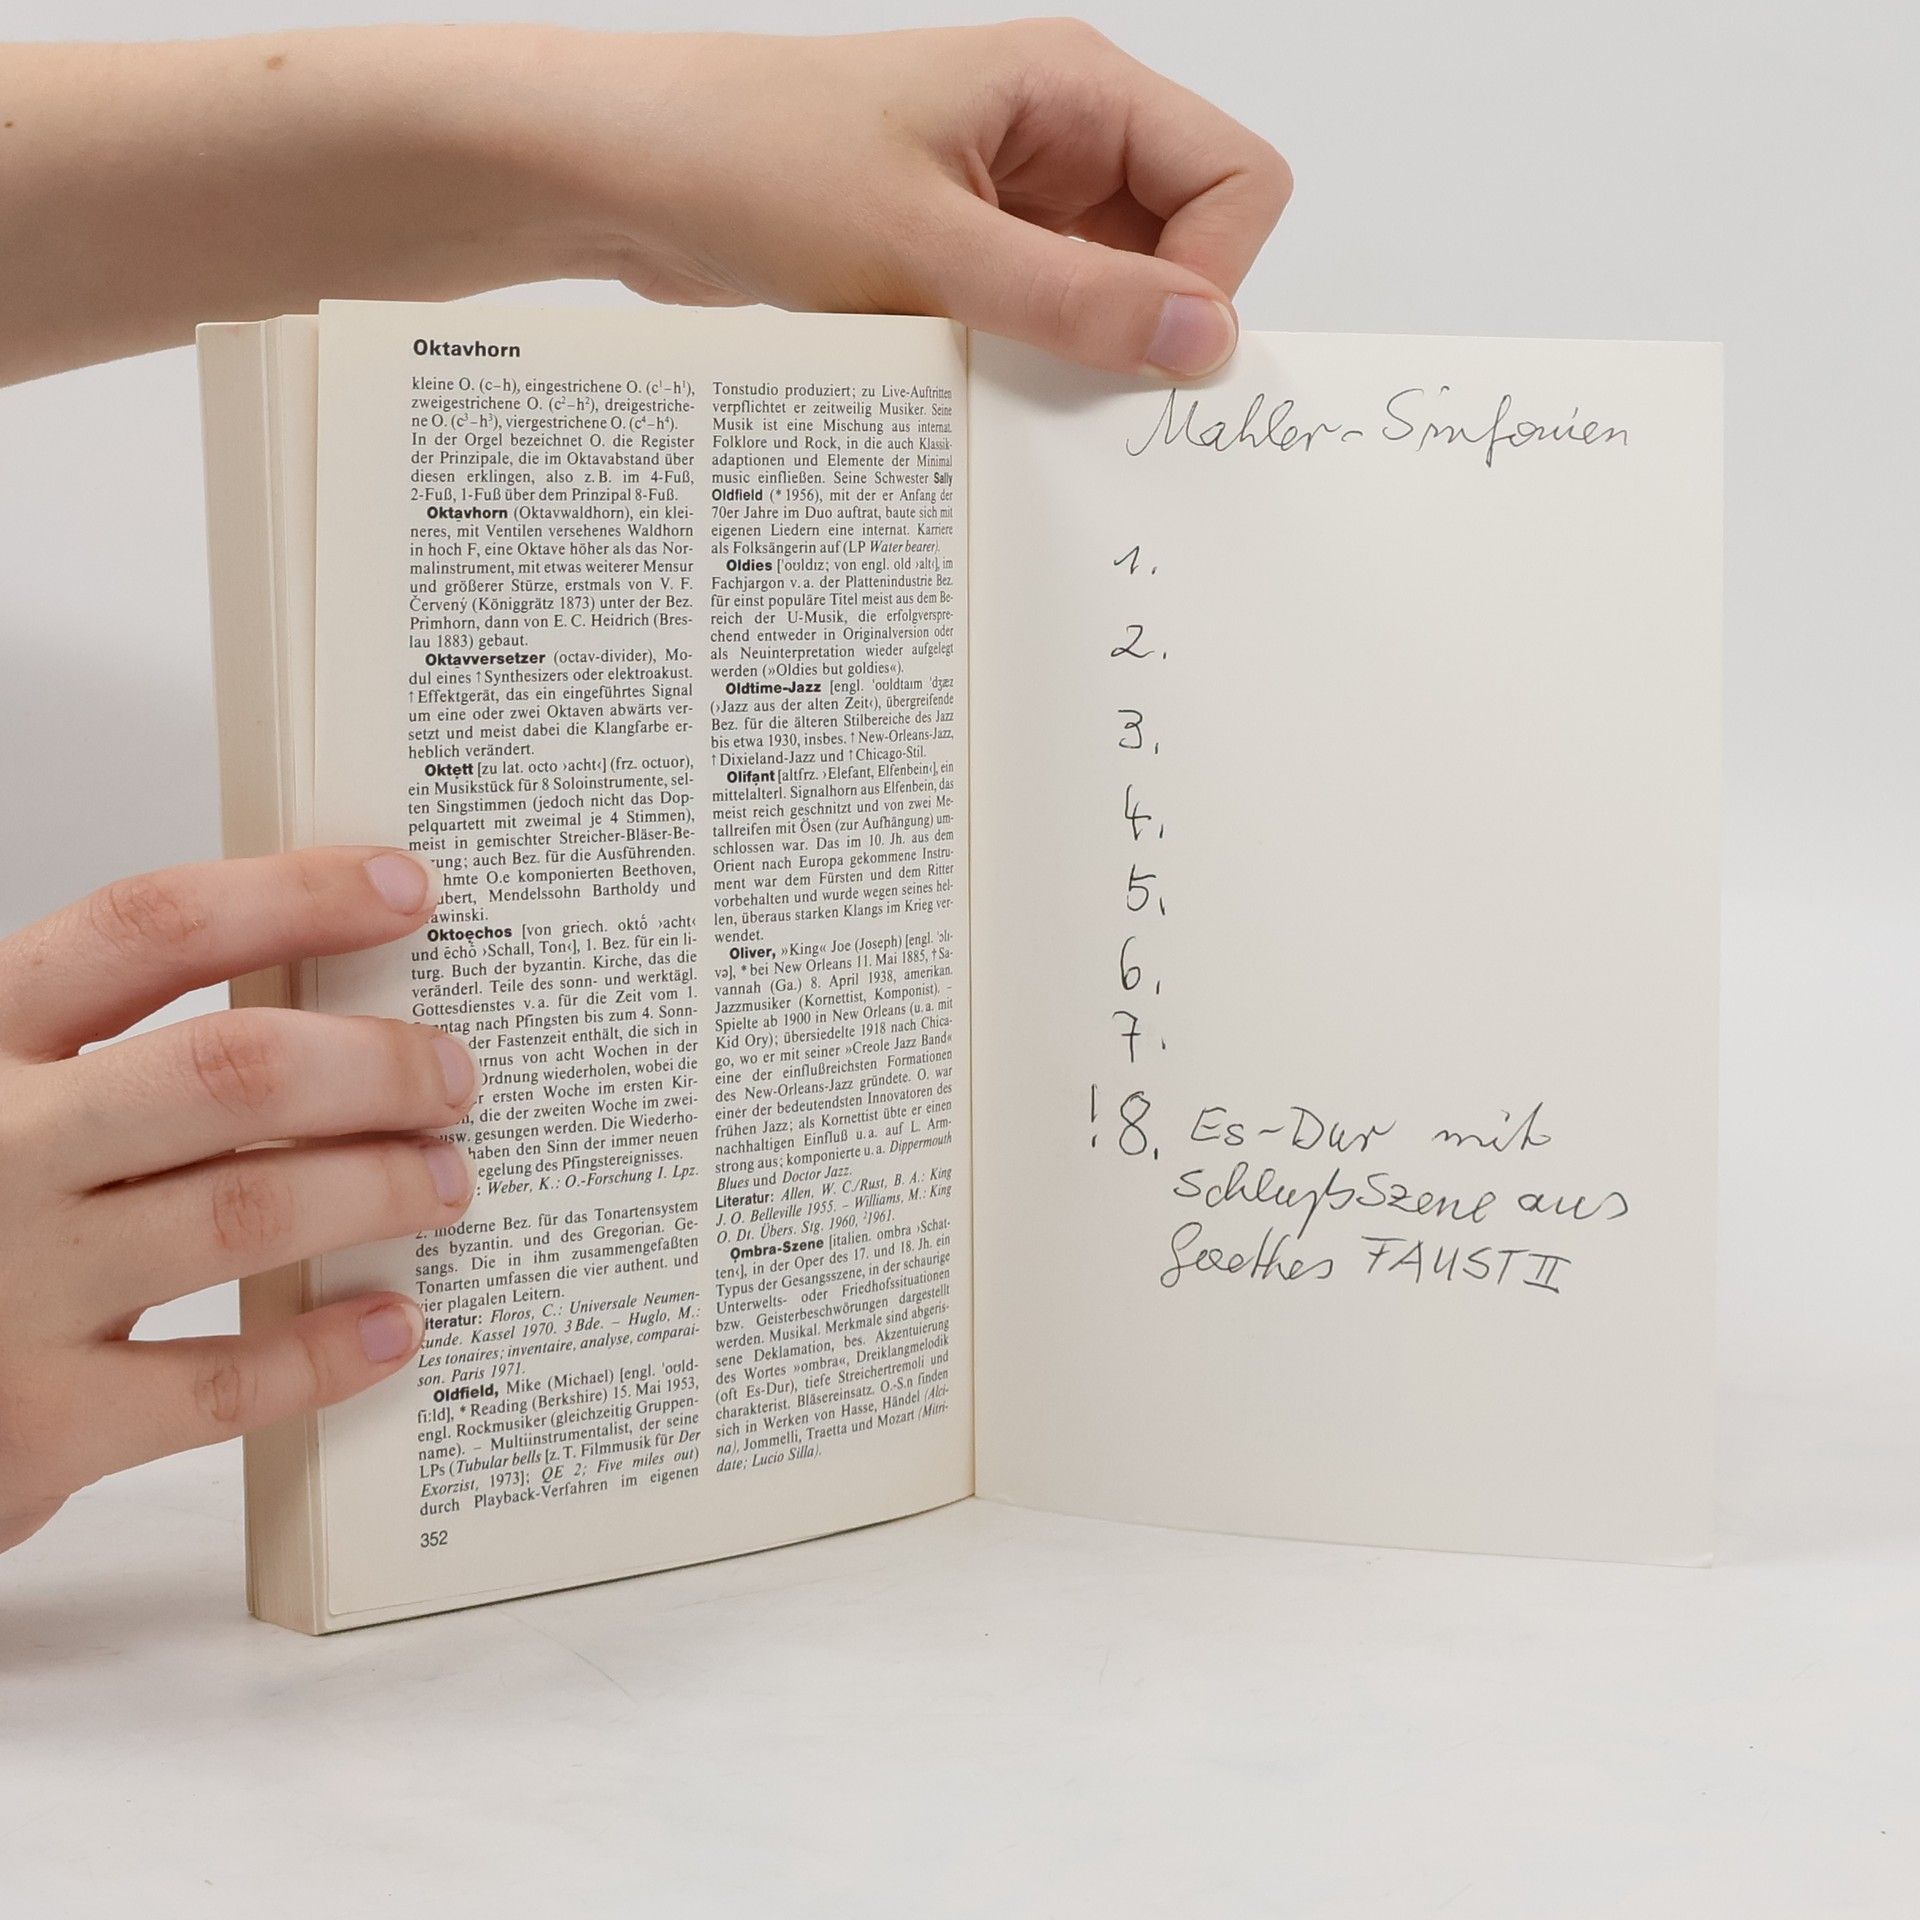 Oktavhorn
kleine O. (c–h), eingestrichene O. (c¹–h¹),
zweigestrichene O. (c²–h²), dreigestriche-
ne O. (c³–h³), viergestrichene O. (c⁴–h⁴).
In der Orgel bezeichnet O. die Register
der Prinzipale, die im Oktavabstand über
diesen erklingen, also z. B. im 4-Fuß,
2-Fuß, 1-Fuß über dem Prinzipal 8-Fuß.
Oktavhorn (Oktavwaldhorn), ein klei-
neres, mit Ventilen versehenes Waldhorn
in hoch F, eine Oktave höher als das Nor-
malinstrument, mit etwas weiterer Mensur
und größerer Stürze, erstmals von V. F.
Červený (Königgrätz 1873) unter der Bez.
Primhorn, dann von E. C. Heidrich (Bres-
lau 1883) gebaut.
Oktavversetzer (octav-divider), Mo-
dul eines ↑Synthesizers oder elektroakust.
↑Effektgerät, das ein eingeführtes Signal
um eine oder zwei Oktaven abwärts ver-
setzt und meist dabei die Klangfarbe er-
heblich verändert.
Oktett [zu lat. octo ›acht‹] (frz. octuor),
ein Musikstück für 8 Soloinstrumente, sel-
ten Singstimmen (jedoch nicht das Dop-
pelquartett mit zweimal je 4 Stimmen),
meist in gemischter Streicher-Bläser-Be-
zung; auch Bez. für die Ausführenden.
hmte O.e komponierten Beethoven,
ubert, Mendelssohn Bartholdy und
awinski.
Oktoechos [von griech. oktō ›acht‹
und ēchō ›Schall, Ton‹], 1. Bez. für ein li-
turg. Buch der byzantin. Kirche, das die
veränderl. Teile des sonn- und werktägl.
Gottesdienstes v. a. für die Zeit vom 1.
ntag nach Pfingsten bis zum 4. Sonn-
der Fastenzeit enthält, die sich in
urnus von acht Wochen in der
Ordnung wiederholen, wobei die
r ersten Woche im ersten Kir-
n, die der zweiten Woche im zwei-
usw. gesungen werden. Die Wiederho-
haben den Sinn der immer neuen
egelung des Pfingstereignisses.
: Weber, K.: O.-Forschung I. Lpz.
2. moderne Bez. für das Tonartensystem
des byzantin. und des Gregorian. Ge-
sangs. Die in ihm zusammengefaßten
Tonarten umfassen die vier authent. und
vier plagalen Leitern.
iteratur: Floros, C.: Universale Neumen-
kunde. Kassel 1970. 3 Bde. – Huglo, M.:
Les tonaires; inventaire, analyse, comparai-
son. Paris 1971.
Oldfield, Mike (Michael) [engl. ˈoʊld-
fiːld], * Reading (Berkshire) 15. Mai 1953,
engl. Rockmusiker (gleichzeitig Gruppen-
name). – Multiinstrumentalist, der seine
LPs (Tubular bells [z. T. Filmmusik für Der
Exorzist, 1973]; QE 2; Five miles out)
durch Playback-Verfahren im eigenen
352
Tonstudio produziert; zu Live-Auftritten
verpflichtet er zeitweilig Musiker. Seine
Musik ist eine Mischung aus internat.
Folklore und Rock, in die auch Klassik-
adaptionen und Elemente der Minimal
music einfließen. Seine Schwester Sally
Oldfield (* 1956), mit der er Anfang der
70er Jahre im Duo auftrat, baute sich mit
eigenen Liedern eine internat. Karriere
als Folksängerin auf (LP Water bearer).
Oldies [ˈoʊldɪz; von engl. old ›alt‹], im
Fachjargon v. a. der Plattenindustrie Bez.
für einst populäre Titel meist aus dem Be-
reich der U-Musik, die erfolgverspre-
chend entweder in Originalversion oder
als Neuinterpretation wieder aufgelegt
werden (»Oldies but goldies«).
Oldtime-Jazz [engl. ˈoʊldtaɪm ˈdʒæz
(›Jazz aus der alten Zeit‹), übergreifende
Bez. für die älteren Stilbereiche des Jazz
bis etwa 1930, insbes. ↑New-Orleans-Jazz,
↑Dixieland-Jazz und ↑Chicago-Stil.
Olifant [altfrz. ›Elefant, Elfenbein‹], ein
mittelalterl. Signalhorn aus Elfenbein, das
meist reich geschnitzt und von zwei Me-
tallreifen mit Ösen (zur Aufhängung) um-
schlossen war. Das im 10. Jh. aus dem
Orient nach Europa gekommene Instru-
ment war dem Fürsten und dem Ritter
vorbehalten und wurde wegen seines hel-
len, überaus starken Klangs im Krieg ver-
wendet.
Oliver, »King« Joe (Joseph) [engl. ˈɔlɪ-
və], * bei New Orleans 11. Mai 1885, † Sa-
vannah (Ga.) 8. April 1938, amerikan.
Jazzmusiker (Kornettist, Komponist). –
Spielte ab 1900 in New Orleans (u. a. mit
Kid Ory); übersiedelte 1918 nach Chica-
go, wo er mit seiner »Creole Jazz Band«
eine der einflußreichsten Formationen
des New-Orleans-Jazz gründete. O. war
einer der bedeutendsten Innovatoren des
frühen Jazz; als Kornettist übte er einen
nachhaltigen Einfluß u. a. auf L. Arm-
strong aus; komponierte u. a. Dippermouth
Blues und Doctor Jazz.
Literatur: Allen, W. C./Rust, B. A.: King
J. O. Belleville 1955. – Williams, M.: King
O. Dt. Übers. Stg. 1960, ²1961.
Ombra-Szene [italien. ombra ›Schat-
ten‹], in der Oper des 17. und 18. Jh. ein
Typus der Gesangsszene, in der schaurige
Unterwelts- oder Friedhofssituationen
bzw. Geisterbeschwörungen dargestellt
werden. Musikal. Merkmale sind abgeris-
sene Deklamation, bes. Akzentuierung
des Wortes »ombra«, Dreiklangmelodik
(oft Es-Dur), tiefe Streichertremoli und
charakterist. Bläsereinsatz. O.-S.n finden
sich in Werken von Hasse, Händel (Alci-
na), Jommelli, Traetta und Mozart (Mitri-
date; Lucio Silla).
Mahler-Sinfonien
1.
2.
3.
4.
5.
6.
7.
!8. Es-Dur mit
Schlußszene aus
Goethes FAUST II